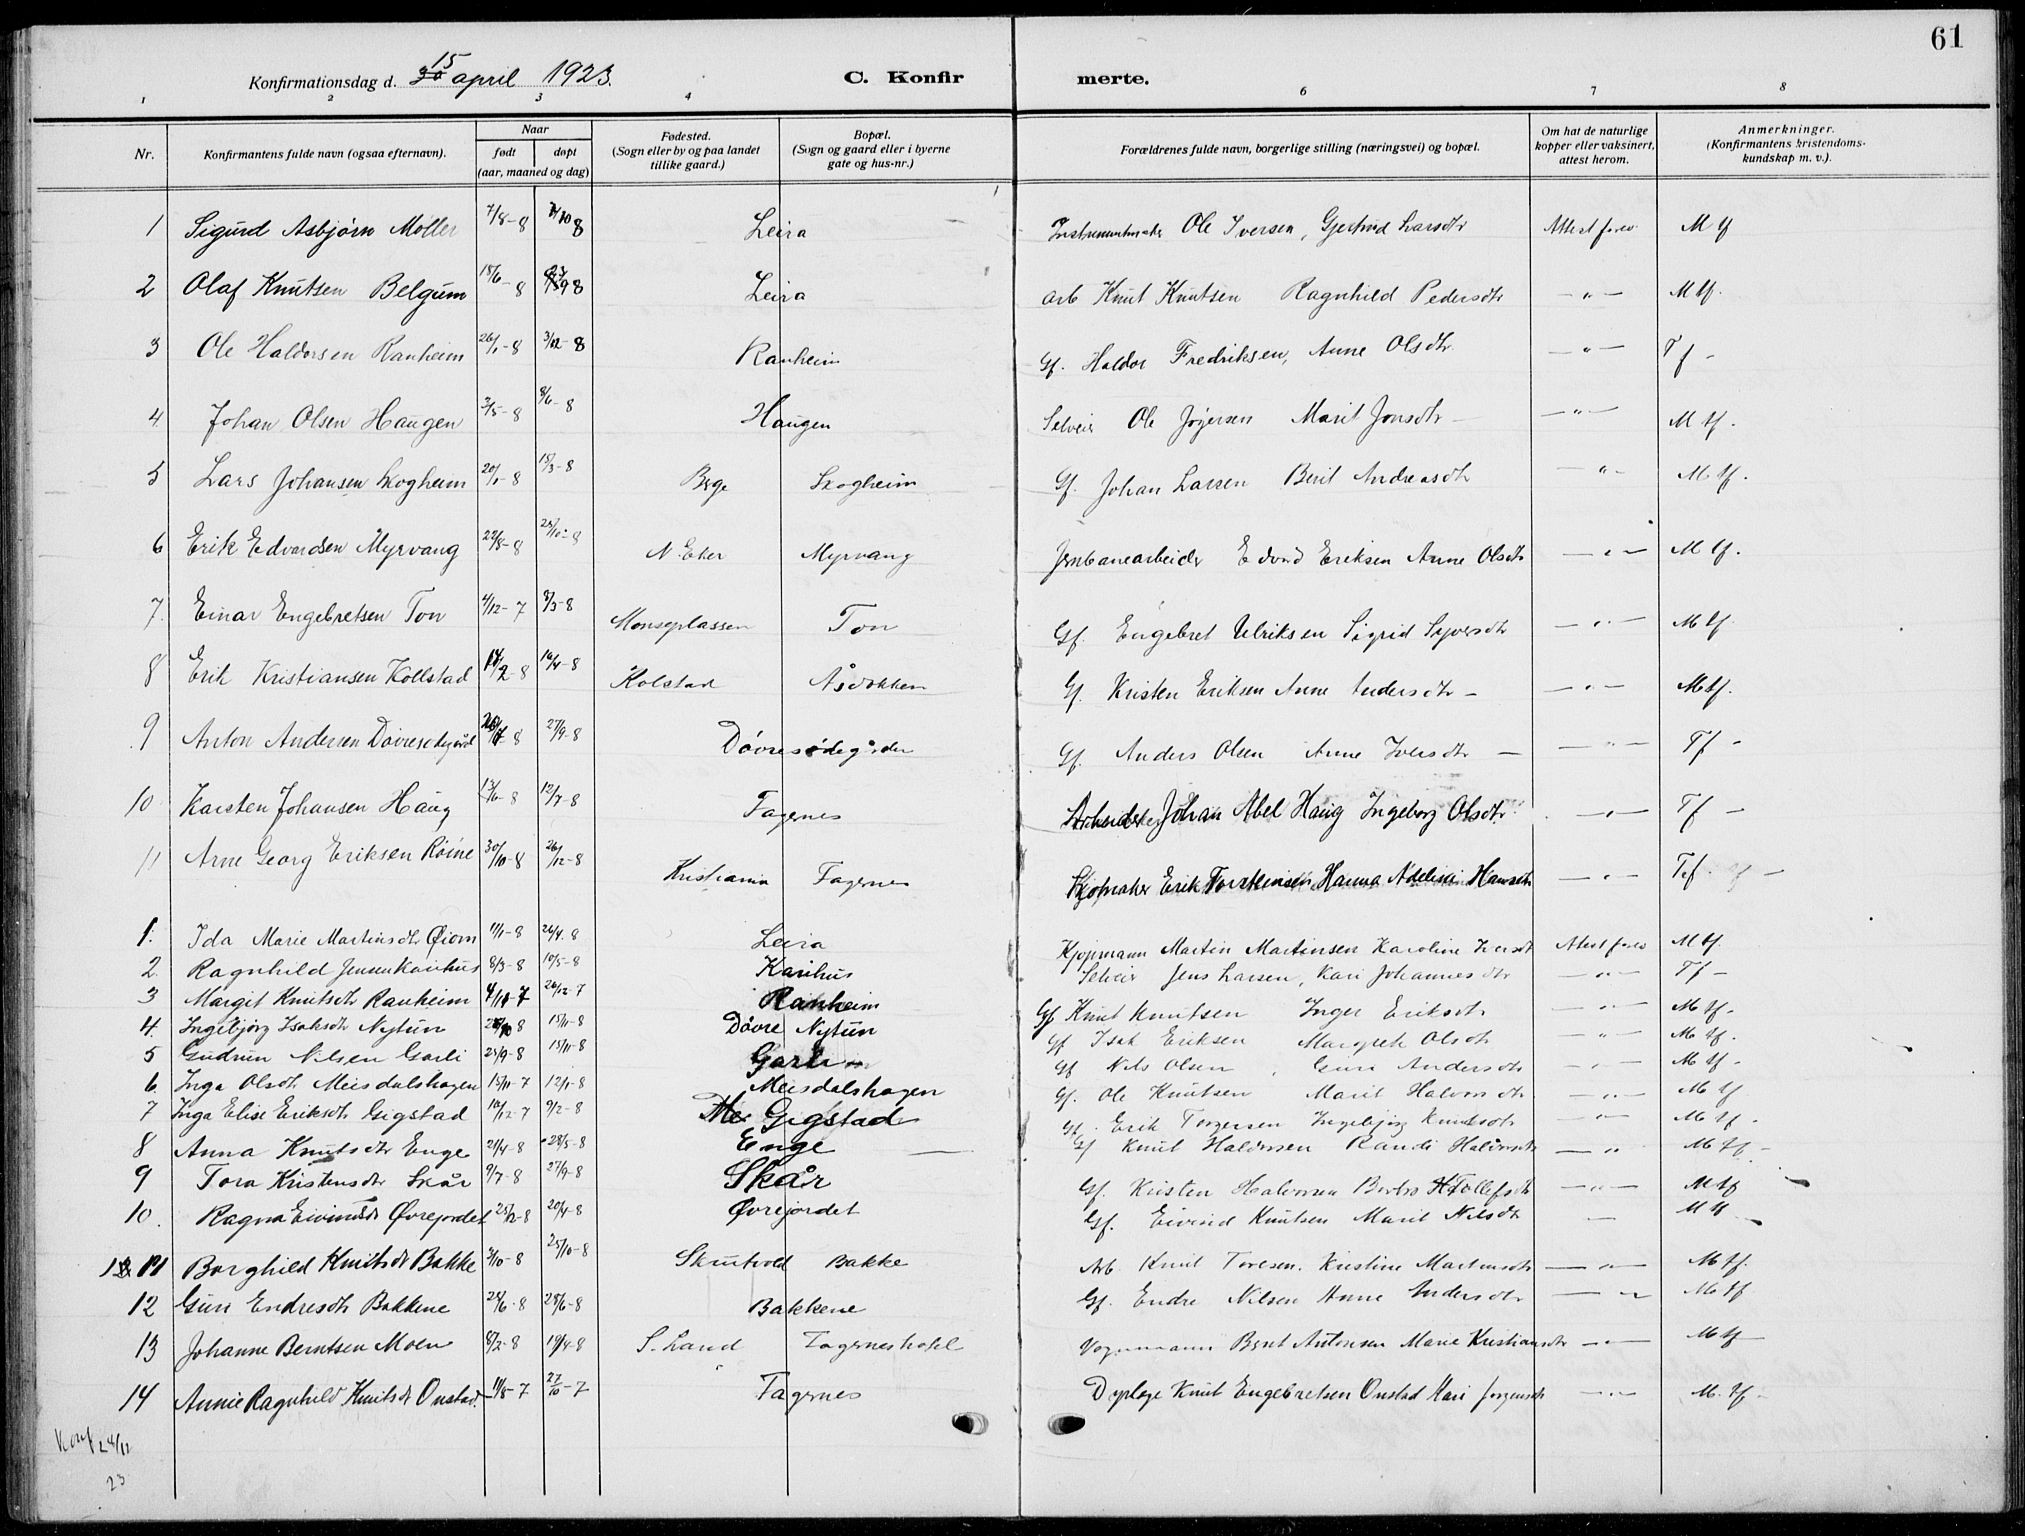 61
15
Konfirmationsdag d. 30 april 1923. C. Konfirmerte.
1 2 3 4 6 7 8
Nr. Konfirmantens fulde navn (ogsaa efternavn). Naar født døpt (aar, maaned og dag) Fødested. (Sogn eller by og paa landet tillike gaard.) Bopæl. (Sogn og gaard eller i byerne gate og hus-nr.) Forældrenes fulde navn, borgerlige stilling (næringsvei) og bopæl. Om hat de naturlige kopper eller vaksinert, attest herom. Anmerkninger. (Konfirmantens kristendomskundskap m. v.).
1 Sigurd Asbjørn Møller 7/8-8 /10 8 Leira Instrumentmaker Ole Iversen, Gjertrud Larsdtr Attest forev. Mtf
2 Olaf Knutsen Belgum 18/6-8 8 Leira Arb Knut Knutsen Ragnhild Pedersdtr -"- Mtf.
3 Ole Haldorsen Ranheim 26/1-8 3/12-8 Ranheim Gf. Haldor Fredriksen, Anne Olsdtr. -"- Tf-
4 Johan Olsen Haugen 3/5-8 8/6-8 Haugen Selveier Ole Jøgersen Marit Jonsdtr- -"- Mtf.
5 Lars Johansen Skogheim 20/1-8 15/3-8 Berge Skogheim Gf. Johan Larsen Berit Andreasdtr -"- Mtf.
6 Erik Edvardsen Myrvang 22/8-8 25/10-8 N. Eker Myrvang Jernbanearbeider Edvard Eriksen Anne Olsdtr -"- Mtf.
7. Einar Engebretsen Ton 4/12-7 8/3-8 Monseplassen Ton Gf. Engebret Ulriksen Sigrid Syversdtr -"- Mtf.
8 Erik Kristiansen Kollstad /2-8 16/4-8 Kolstad Åsdokken Gf. Kristen Eriksen Anne Andersdtr- -"- Mtf.
9 Anton Andersen Døvresødegård 8 27/9-8 Døvresødegården Gf. Anders Olsen Anne Iversdtr- -"- Tf-
10 Karsten Johansen Haug 13/6-8 12/7-8 Fagernes Arbeider Johan Abel Haug Ingeborg Olsdtr. -"- Tf-
11 Arne Georg Eriksen Röine 30/10-8 26/12-8 Kristiania Fagernes Skomaker Erik Torstensen Hanna Adeline Hansdtr -"- Tf.
1. Ida Marie Martinsdtr Øiom 11/1-8 26/4-8 Leira Kjøpmann Martin Martinsen Karoline Iversdtr Attest forev Mtf.
2. Ragnhild Jensen Karihus 8/3-8 10/5-8 Karihus Selveier Jens Larsen, Kari Johannesdtr -"- Tf-
3 Margit Knutsdtr Ranheim 4/11-7 26/12-7 Ranheim Gf Knut Knutsen Inger Eriksdtr -"- Mtf-
4. Ingebjørg Isaksdtr Nytun 8 15/11-8 Døvre Nytun Gf Isak Eriksen Margrete Olsdtr -"- Mtf.
5 Gudrun Nilsen Garli 25/9-8 15/11-8 Garli Gf Nils Olsen, Guri Andersdtr -"- Mtf-
6 Inga Olsdtr Meisdalshagen 15/11-7 12/1-8 Meisdalshagen Gf. Ole Knutsen Marit Halvorsdtr -"- Mtf
7 Inga Elise Eriksdtr Gigstad 10/12-7 9/2-8 Gigstad Gf. Erik Torgersen Ingebjørg Knutsdtr -"- Mtf.
8 Anna Knutsdtr Enge 21/4-8 28/5-8 Enge Gf Knut Haldorsen Randi Halvorsdtr -"- Mtf-
9 Tora Kristensdtr Skår 9/7-8 27/9-8 Skår Gf. Kristen Halvorsen Barbro Tollefsdtr -"- Mtf
10. Ragna Eivindsdtr Øvrejordet 25/2-8 20/4-8 Øvrejordet Gf. Eivind Knutsen Marit Nilsdtr - Mtf-
11 Borghild Knutsdtr Bakke 3/10-8 25/10-8 Skrutvold Bakke Arb. Knut Toresen. Kristine Martinsdtr -"- Mtf.
12 Guri Endresdtr Bakkene 24/6-8 28/6-8 Bakkene Gf. Endre Nilsen Anne Andersdtr -"- Mtf
13 Johanne Berntsen Moen 8/2-8 19/4-8 S. Land Fagernes hotel Vognmann Bernt Antonsen Marie Kristiansdtr -"- Mtf
14 Annie Ragnhild Knutsdtr Onstad 11/8-7 27/10-7 Fagernes Dyrlege Knut Engebretsen Onstad Kari Jørgensdtr -"- M.tf-
Konf 28/11
23